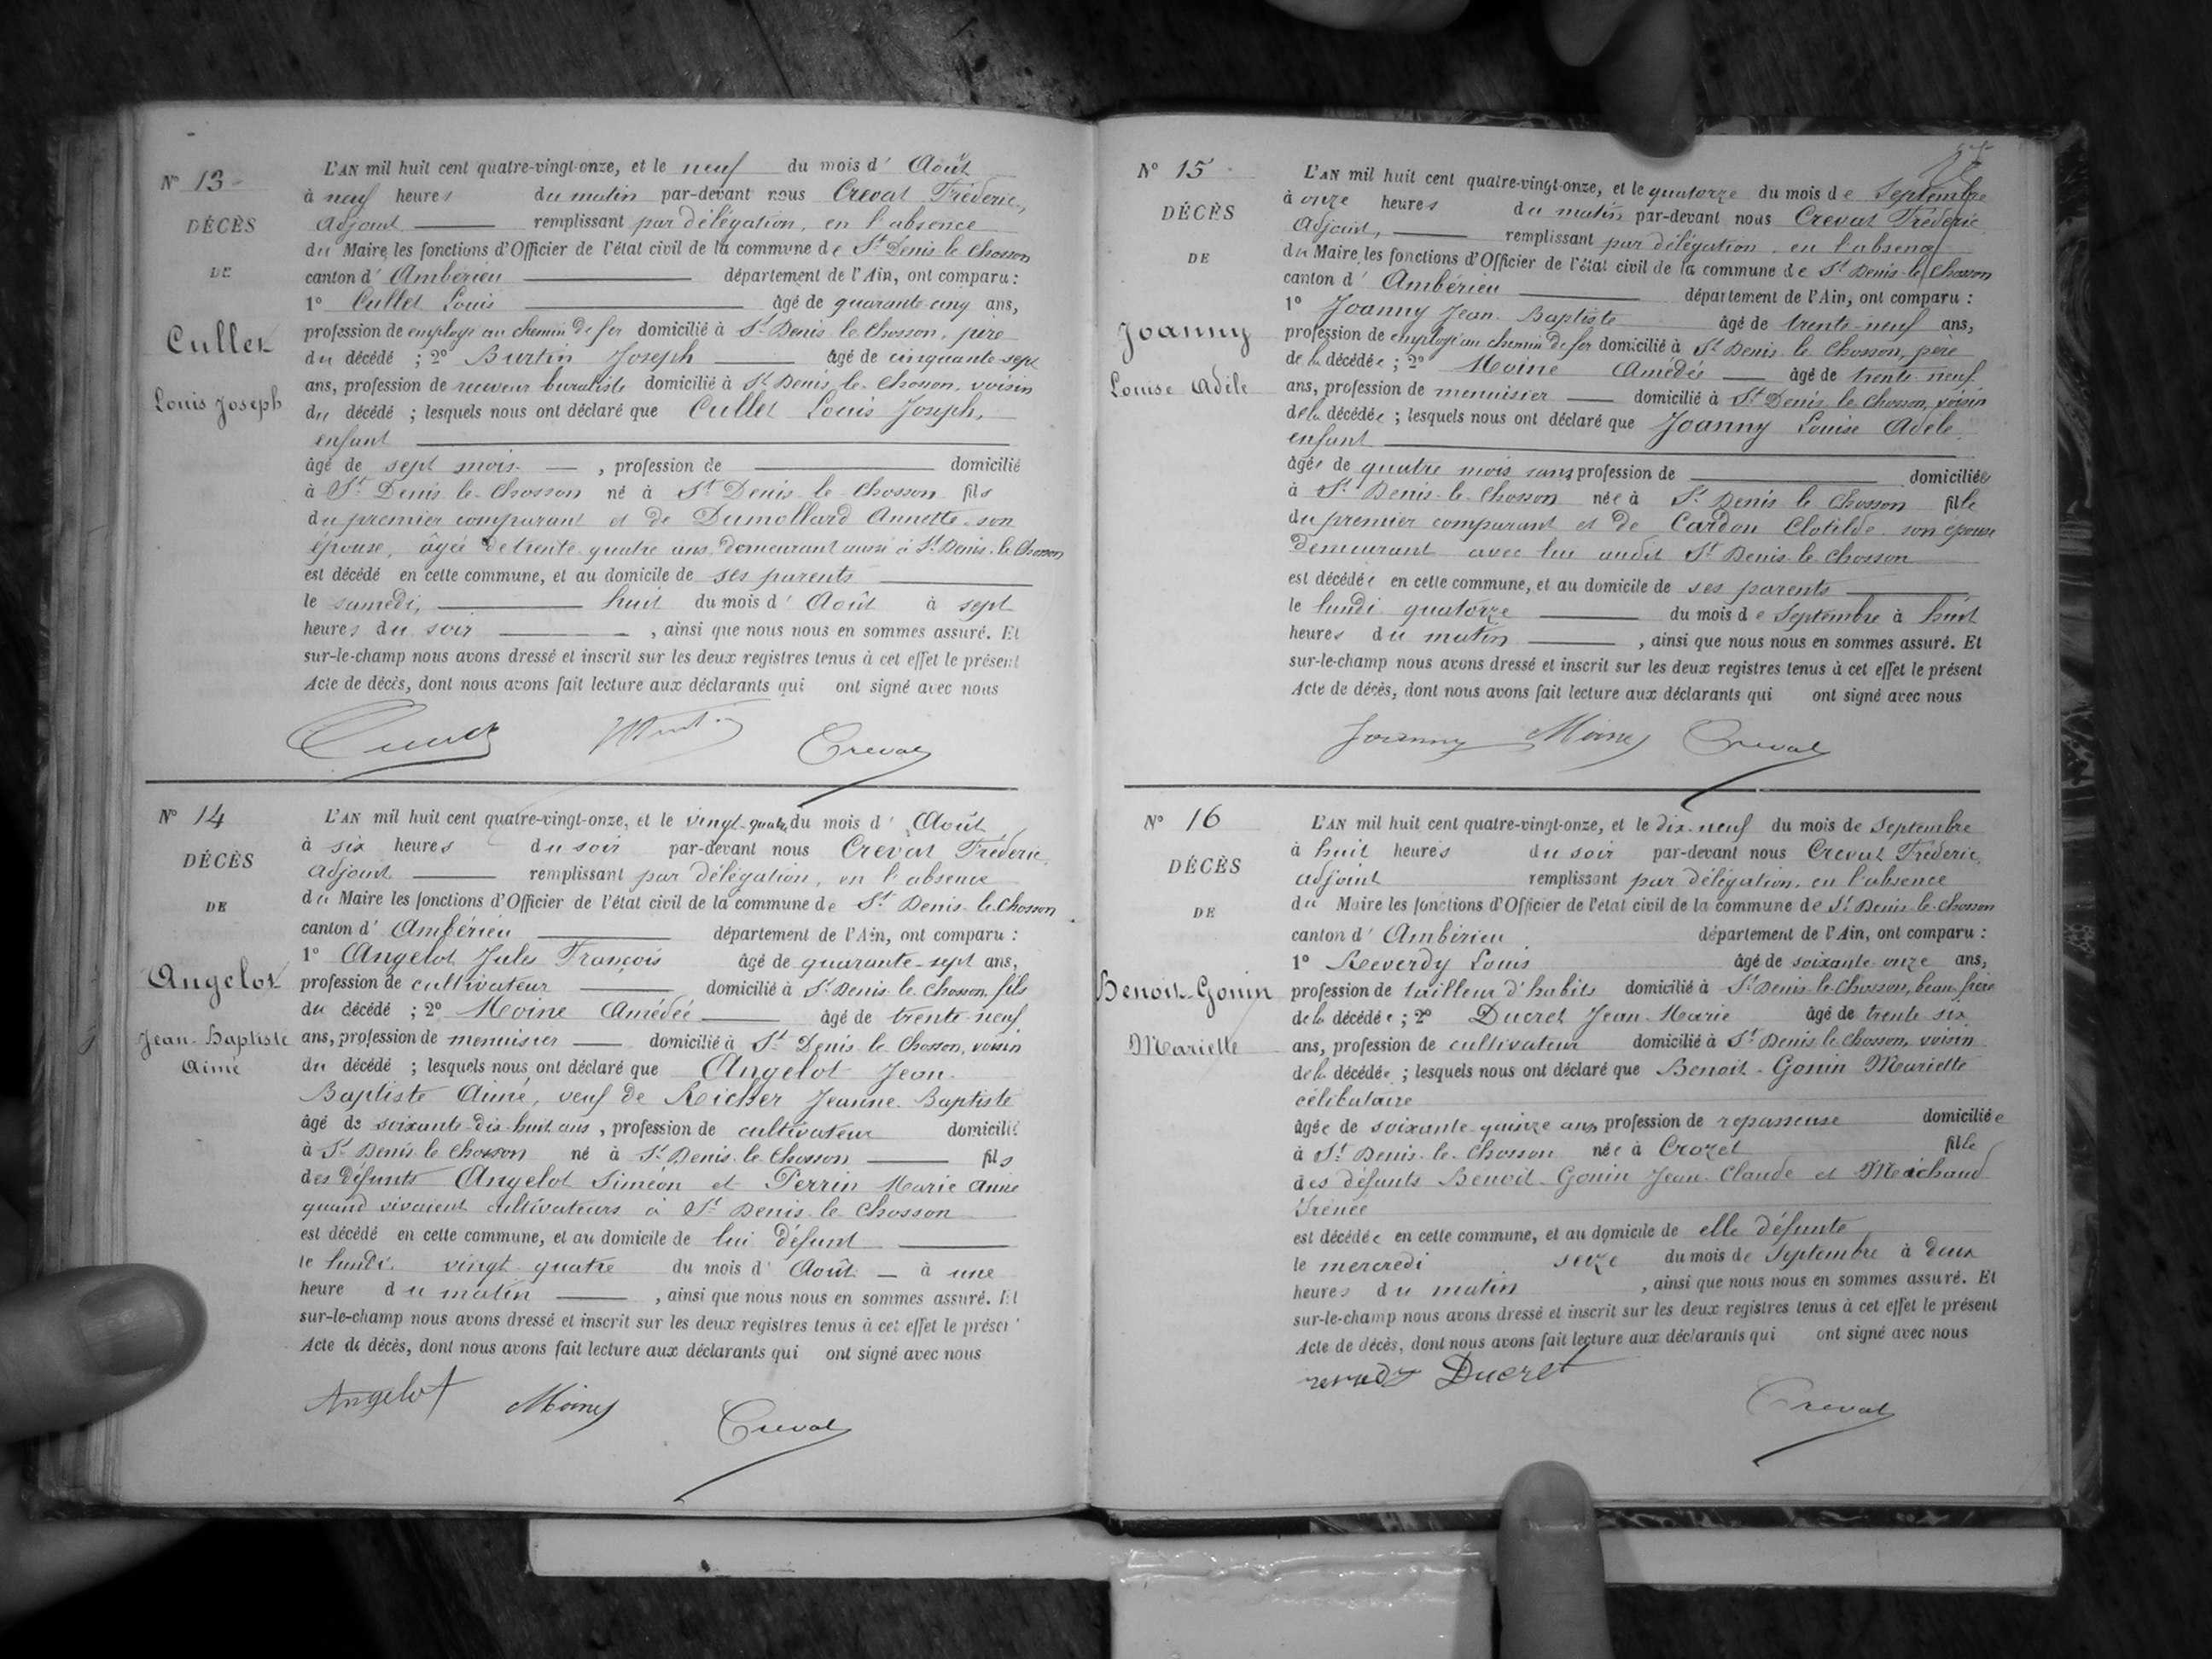 N° 13
DÉCÈS
DE
Cullet
Louis Joseph
L'AN mil huit cent quatre-vingt-onze, et le neuf du mois d' Août
à neuf heures du matin par-devant nous Crevat Fréderic,
adjoint remplissant par délégation, en l'absence
du Maire les fonctions d'Officier de l'état civil de la commune de St Denis le Chosson
canton d' Ambérieu département de l'Ain, ont comparu :
1° Cullet Louis âgé de quarante cinq ans,
profession de employé au chemin de fer domicilié à St Denis le Chosson, père
du décédé ; 2° Burtin Joseph âgé de cinquante-sept
ans, profession de receveur buraliste domicilié à St Denis le Chosson, voisin
du décédé ; lesquels nous ont déclaré que Cullet Louis Joseph,
enfant
âgé de sept mois , profession de domicilié
à St Denis le Chosson né à St Denis le Chosson fils
du premier comparant et de Dumollard Annette son
épouse, âgée de trente quatre ans, demeurant aussi à St Denis le Chosson
est décédé en cette commune, et au domicile de ses parents
le samedi, huit du mois d' Août à sept
heures du soir , ainsi que nous nous en sommes assuré. Et
sur-le-champ nous avons dressé et inscrit sur les deux registres tenus à cet effet le présent
Acte de décès, dont nous avons fait lecture aux déclarants qui ont signé avec nous
Crevat
N° 14
DÉCÈS
DE
Angelot
Jean-Baptiste
Aimé
L'AN mil huit cent quatre-vingt-onze, et le vingt-quatre du mois d' Août
à six heures du soir par-devant nous Crevat Fréderic,
adjoint remplissant par délégation, en l'absence
du Maire les fonctions d'Officier de l'état civil de la commune de St Denis le Chosson
canton d' Ambérieu département de l'Ain, ont comparu :
1° Angelot Jules François âgé de quarante-sept ans,
profession de cultivateur domicilié à St Denis le Chosson, fils
du décédé ; 2° Moine Amédée âgé de trente neuf
ans, profession de menuisier domicilié à St Denis le Chosson, voisin
du décédé ; lesquels nous ont déclaré que Angelot Jean-
Baptiste Aimé, veuf de Jeanne Baptiste
âgé de soixante-dix-huit ans , profession de cultivateur domicilié
à St Denis le Chosson né à St Denis le Chosson fils
des défunts Angelot Siméon et Perrin Marie Anne
quand vivaient cultivateurs à St Denis le Chosson
est décédé en cette commune, et au domicile de lui défunt
le lundi vingt quatre du mois d' Août à une
heure du matin , ainsi que nous nous en sommes assuré. Et
sur-le-champ nous avons dressé et inscrit sur les deux registres tenus à cet effet le présent
Acte de décès, dont nous avons fait lecture aux déclarants qui ont signé avec nous
Angelot Moine Crevat
N° 15
DÉCÈS
DE
Joanny
Louise Adèle
L'AN mil huit cent quatre-vingt-onze, et le quatorze du mois de Septembre
à onze heures du matin par-devant nous Crevat Fréderic
adjoint, remplissant par délégation en l'absence
du Maire les fonctions d'Officier de l'état civil de la commune de St Denis le Chosson
canton d' Ambérieu département de l'Ain, ont comparu :
1° Joanny Jean Baptiste âgé de trente-neuf ans,
profession de employé au chemin de fer domicilié à St Denis le Chosson, père
de la décédée ; 2° Moine Amédée âgé de trente neuf
ans, profession de menuisier domicilié à St Denis le Chosson, voisin
de la décédée ; lesquels nous ont déclaré que Joanny Louise Adèle
enfant
âgée de quatre mois sans profession de domiciliée
à St Denis le Chosson née à St Denis le Chosson fille
du premier comparant et de Cardon Clotilde son épouse
demeurant avec lui audit St Denis le Chosson
est décédée en cette commune, et au domicile de ses parents
le lundi quatorze du mois de Septembre à huit
heures du matin , ainsi que nous nous en sommes assuré. Et
sur-le-champ nous avons dressé et inscrit sur les deux registres tenus à cet effet le présent
Acte de décès, dont nous avons fait lecture aux déclarants qui ont signé avec nous
Joanny Moine Crevat
N° 16
DÉCÈS
DE
Benoit-Gonin
Mariette
L'AN mil huit cent quatre-vingt-onze, et le dix-neuf du mois de Septembre
à huit heures du soir par-devant nous Crevat Fréderic,
adjoint remplissant par délégation, en l'absence
du Maire les fonctions d'Officier de l'état civil de la commune de St Denis le Chosson
canton d' Ambérieu département de l'Ain, ont comparu :
1° Reverdy Louis âgé de soixante onze ans,
profession de tailleur d'habits domicilié à St Denis le Chosson, beau-frère
de la décédée ; 2° Ducret Jean-Marie âgé de trente six
ans, profession de cultivateur domicilié à St Denis le Chosson, voisin
de la décédée ; lesquels nous ont déclaré que Benoit-Gonin Mariette
célibataire
âgée de soixante-quinze ans profession de repasseuse domiciliée
à St Denis-le-Chosson née à Crozet fille
des défunts Benoit-Gonin Jean-Claude et Michaud
Irénée
est décédée en cette commune, et au domicile de elle défunte
le mercredi seize du mois de Septembre à deux
heures du matin , ainsi que nous nous en sommes assuré. Et
sur-le-champ nous avons dressé et inscrit sur les deux registres tenus à cet effet le présent
Acte de décès, dont nous avons fait lecture aux déclarants qui ont signé avec nous
Ducret
Crevat